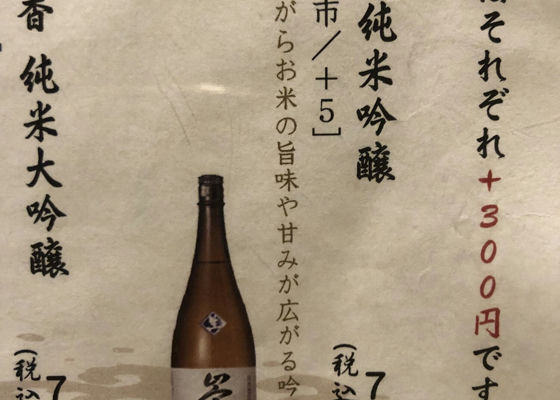 それぞれ+300円です
純米吟醸
(税込
7
市／+5]
がらお米の旨味や甘みが広がる吟
香 純米大吟醸
(税込
7